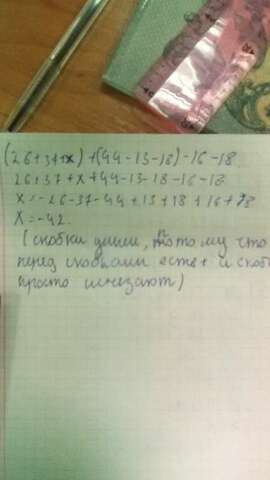 (26+37+x)+(44-13-18)-16-18
26+37+x+44-13-18-16-18
x=-26-37-44+13+18+16+18
X=-42
(скобки ушли, потому что
перед скобками есть + и скоб
просто исчезают)